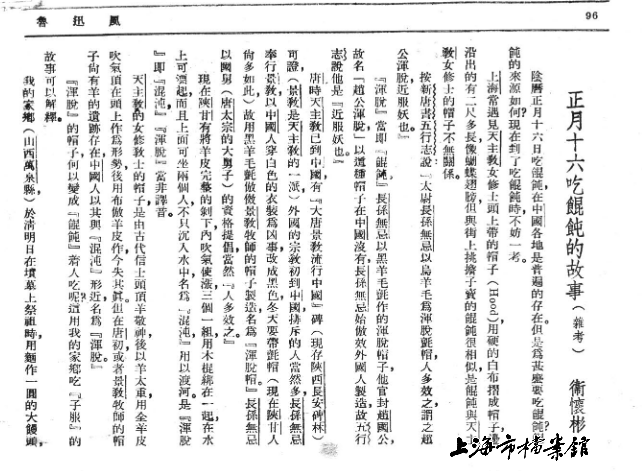 96
魯迅風
正月十六吃餛飩的故事（雜考）　衛懷彬
陰曆正月十六日吃餛飩在中國各地是普遍的存在。但是爲甚麼要吃餛飩？餛
飩的來源如何？現在到了吃餛飩時不妨一考。
上海常遇見天主教女修士頭上帶的帽子（Hood）用硬的白布摺成帽子
沿出的有二尺多長，像蝴蝶翅膀，但與街上挑擔子賣的餛飩很相似，是餛飩與天主
教女修士的帽子不無關係。
按新唐書五行志說：『太尉長孫無忌以烏羊毛爲渾脫氈帽，人多效之，謂之趙
公渾脫，近服妖也。』
『渾脫』當即『餛飩』，長孫無忌以黑羊毛氈作的渾脫帽子，他官封趙國公，
故名『趙公渾脫』，以這種帽子在中國沒有，長孫無忌始倣效外國人製造，故五行
志說他是『近服妖也。』
唐時天主教已到中國，有『大唐景教流行中國』碑（現存陝西長安碑林）
可證（景教是天主教的一派）。外國的宗教初到中國，排斥的人當然多，長孫無忌
奉行景教，以中國人穿白色的衣裳爲凶事，改成黑色，冬天要帶氈帽（現在陝甘人
尙多如此），故用黑羊毛氈倣傚景教牧師的帽子製造，名爲『渾脫帽。』長孫無忌
以國舅（唐太宗的大舅子）的資格提倡，當然『人多效之。』
現在陝甘有將羊皮完整的剝下，內吹氣使漲，三個一組，用木棍綁在一起，在水
上可漂起，而且上面可坐兩個人，不只沉入水中，名爲『混沌』用以渡河，是『渾脫
』即『混沌』，『渾脫』當非譯音。
天主教的女修敎士的帽子是由古代信士頭頂羊敬神，後以羊太重，用全羊皮
吹氣頂在頭上作爲形勢，後用布倣羊皮作，今失其眞，但在唐初或者景教牧師的帽
子尙有羊的遺跡存在，中國人以其與『混沌』形近，名爲『渾脫』
『渾脫』的帽子何以變成『餛飩』，人吃呢？這用我的家鄉吃『子服』的
故事可以解釋。
我的家鄉（山西萬泉縣）於清明日在墳墓上祭祖時，用麵作一圓的大饅頭，
上海市檔案館